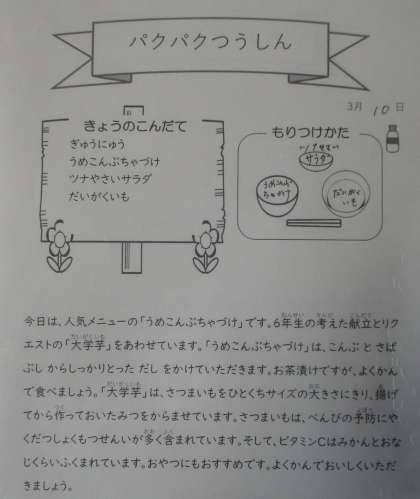 パクパクつうしん
3月 10 日
きょうのこんだて
ぎゅうにゅう
うめこんぶちゃづけ
ツナやさいサラダ
だいがくいも
もりつけかた
ツナやさい
サラダ
うめこんぶ
ちゃづけ
だいがく
いも
今日は、人気メニューの「うめこんぶちゃづけ」です。6年生の考えた献立とリク
エストの「大学芋」をあわせています。「うめこんぶちゃづけ」は、こんぶ と さば
ぶし からしっかりとった だし をかけていただきます。お茶漬けですが、よくかん
で食べましょう。「大学芋」は、さつまいもをひとくちサイズの大きさにきり、揚げ
てから作っておいたみつをからませています。さつまいもは、べんぴの予防にや
くだつしょくもつせんいが多く含まれています。そして、ビタミンCはみかんとおな
じくらいふくまれています。おやつにもおすすめです。よくかんでおいしくいただ
きましょう。